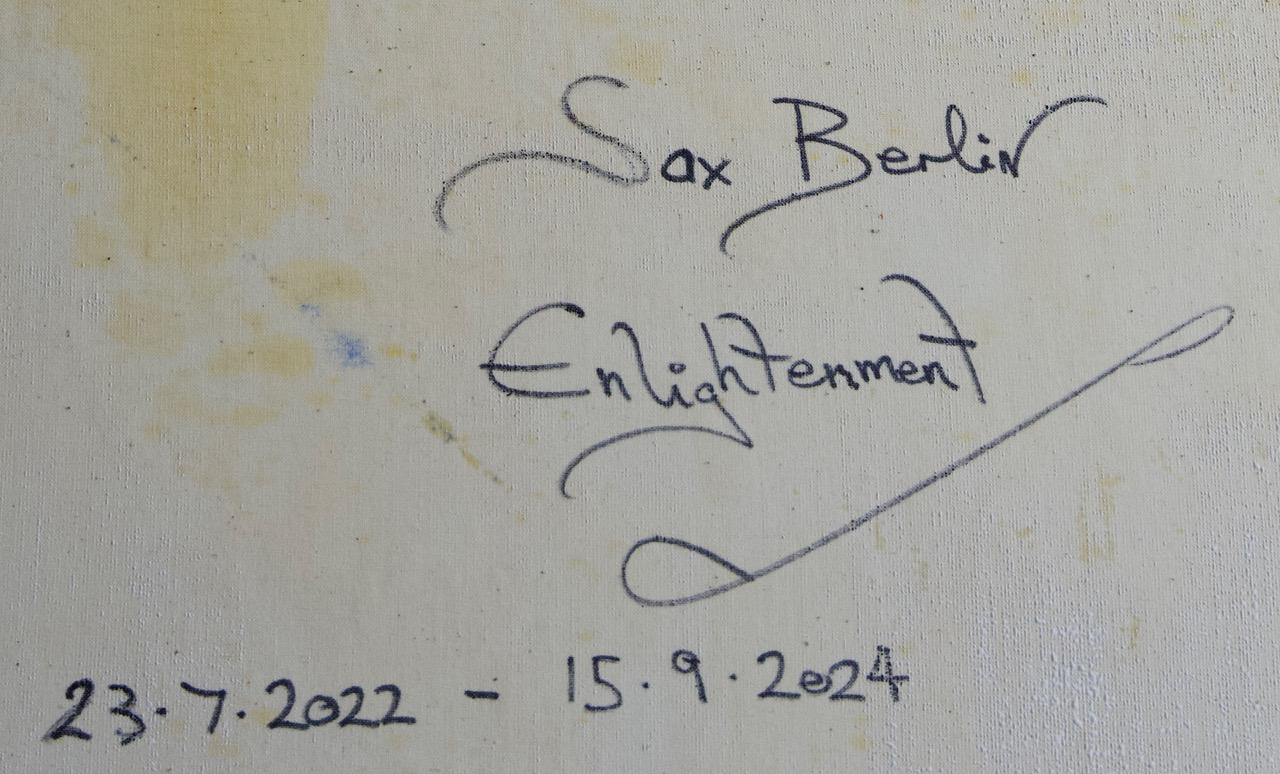 Sax Berlin
Enlightenment
23.7.2022 - 15.9.2024